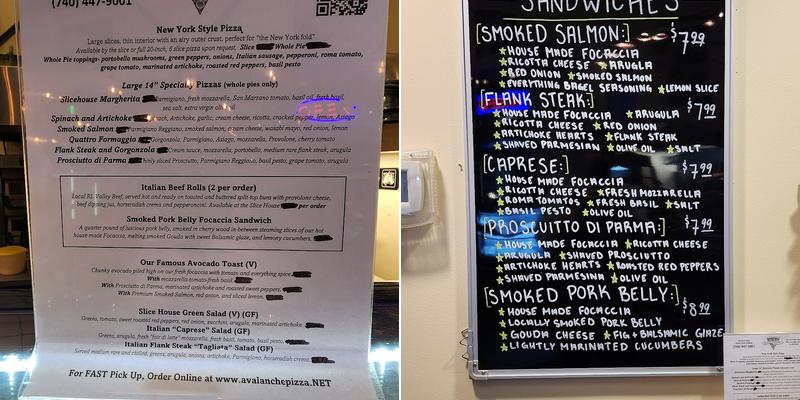 (740) 447-9001
New York Style Pizza
Large slices, thin interior with an airy outer crust, perfect for "the New York fold"
Available by the slice or full 20-inch, 6 slice pizza upon request. Slice Whole Pie
Whole Pie toppings- portobello mushrooms, green peppers, onions, Italian sausage, pepperoni, roma tomato,
grape tomato, marinated artichoke, roasted red peppers, basil pesto
Large 14" Specialty Pizzas (whole pies only)
Slicehouse Margherita Parmigiano, fresh mozzarella, San Marzano tomato, basil oil, fresh basil,
sea salt, extra virgin olive oil
Spinach and Artichoke Artichoke, garlic, cream cheese, ricotta, cracked pepper, lemon, Asiago
Smoked Salmon Parmigiano Reggiano, smoked salmon, cream cheese, wasabi mayo, red onion, lemon
Quattro Formaggio Gorgonzola, Parmigiano, Asiago, mozzarella, Provolone, cherry tomato
Flank Steak and Gorgonzola Cream sauce, mozzarella, portobello, medium rare flank steak, arugula
Prosciutto di Parma thinly sliced Prosciutto, Parmigiano Reggiano, basil pesto, grape tomato, arugula
Italian Beef Rolls (2 per order)
Local RL Valley Beef, served hot and ready on toasted and buttered split-top buns with provolone cheese,
beef dipping jus, horseradish crema and pepperoncini. Available at the Slice House per order
Smoked Pork Belly Focaccia Sandwich
A quarter pound of luscious pork belly, smoked in cherry wood in-between steaming slices of our hot
house-made Focaccia, melting smoked Gouda with sweet Balsamic glaze, and lemony cucumbers,
Our Famous Avocado Toast (V)
Chunky avocado piled high on our fresh focaccia with tomato and everything spice
With mozzarella tomato-fresh basil
With Prosciutto di Parma, marinated artichoke and roasted sweet peppers
With Premium Smoked Salmon, red onion, and sliced lemon
Slice House Green Salad (V) (GF)
Greens, tomato, sweet roasted red peppers, red onion, zucchini, arugula, marinated artichoke
Italian "Caprese" Salad (GF)
Greens, arugula, fresh "fior di latte" mozzarella, fresh basil, tomato, basil pesto,
Italian Flank Steak "Tagliata" Salad (GF)
Served medium rare and chilled, greens, arugula, onions, artichoke, Parmigiano, horseradish crema
For FAST Pick Up, Order Online at www.avalanchepizza.NET
SANDWICHES
[SMOKED SALMON:] $7.99
HOUSE MADE FOCACCIA
RICOTTA CHEESE ARUGLA
RED ONION SMOKED SALMON
EVERYTHING BAGEL SEASONING LEMON SLICE
[FLANK STEAK:] $7.99
HOUSE MADE FOCACCIA ARUGULA
RICOTTA CHEESE RED ONION
ARTICHOKE HEARTS FLANK STEAK
SHAVED PARMESIAN OLIVE OIL SALT
[CAPRESE:] $7.99
HOUSE MADE FOCACCIA
RICOTTA CHEESE FRESH MOZZARELLA
ROMA TOMATOS FRESH BASIL SALT
BASIL PESTO OLIVE OIL
[PROSCUITTO DI PARMA:] $7.99
HOUSE MADE FOCACCIA RICOTTA CHEESE
ARUGULA SHAVED PROSCIUTTO
ARTICHOKE HEARTS ROASTED RED PEPPERS
SHAVED PARMESINA OLIVE OIL
[SMOKED PORK BELLY:] $8.99
HOUSE MADE FOCACCIA
LOCALLY SMOKED PORK BELLY
GOUDA CHEESE FIG + BALSIAMIC GLAZE
LIGHTLY MARINATED CUCUMBERS